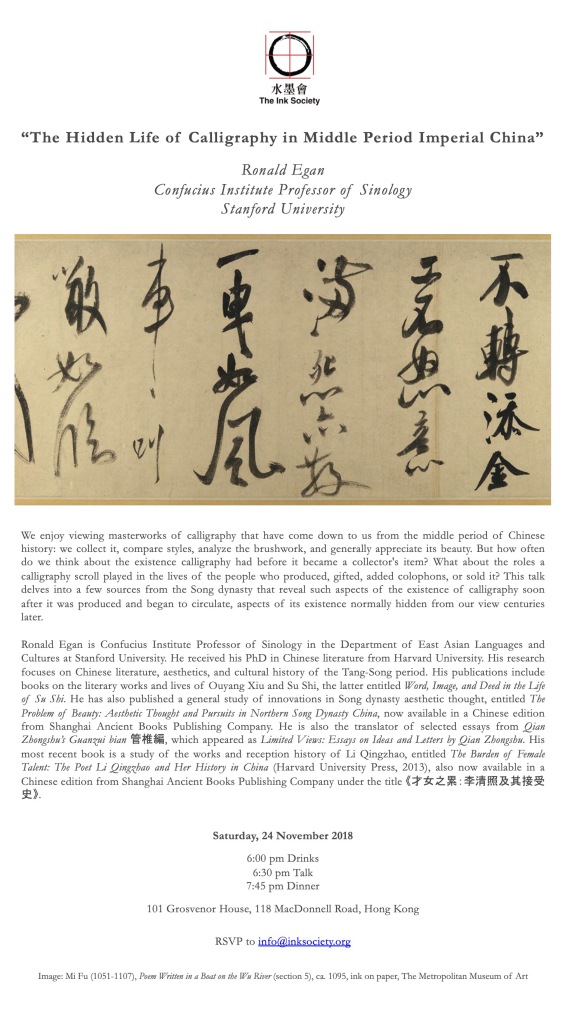 水墨會
The Ink Society
“The Hidden Life of Calligraphy in Middle Period Imperial China”
Ronald Egan
Confucius Institute Professor of Sinology
Stanford University
不轉添金
工不怒意
滿怨亦散
一曳如風
車叫
噉如臨
We enjoy viewing masterworks of calligraphy that have come down to us from the middle period of Chinese
history: we collect it, compare styles, analyze the brushwork, and generally appreciate its beauty. But how often
do we think about the existence calligraphy had before it became a collector's item? What about the roles a
calligraphy scroll played in the lives of the people who produced, gifted, added colophons, or sold it? This talk
delves into a few sources from the Song dynasty that reveal such aspects of the existence of calligraphy soon
after it was produced and began to circulate, aspects of its existence normally hidden from our view centuries
later.
Ronald Egan is Confucius Institute Professor of Sinology in the Department of East Asian Languages and
Cultures at Stanford University. He received his PhD in Chinese literature from Harvard University. His research
focuses on Chinese literature, aesthetics, and cultural history of the Tang-Song period. His publications include
books on the literary works and lives of Ouyang Xiu and Su Shi, the latter entitled Word, Image, and Deed in the Life
of Su Shi. He has also published a general study of innovations in Song dynasty aesthetic thought, entitled The
Problem of Beauty: Aesthetic Thought and Pursuits in Northern Song Dynasty China, now available in a Chinese edition
from Shanghai Ancient Books Publishing Company. He is also the translator of selected essays from Qian
Zhongshu's Guanzui bian 管椎編, which appeared as Limited Views: Essays on Ideas and Letters by Qian Zhongshu. His
most recent book is a study of the works and reception history of Li Qingzhao, entitled The Burden of Female
Talent: The Poet Li Qingzhao and Her History in China (Harvard University Press, 2013), also now available in a
Chinese edition from Shanghai Ancient Books Publishing Company under the title《才女之累：李清照及其接受
史》.
Saturday, 24 November 2018
6:00 pm Drinks
6:30 pm Talk
7:45 pm Dinner
101 Grosvenor House, 118 MacDonnell Road, Hong Kong
RSVP to info@inksociety.org
Image: Mi Fu (1051-1107), Poem Written in a Boat on the Wu River (section 5), ca. 1095, ink on paper, The Metropolitan Museum of Art